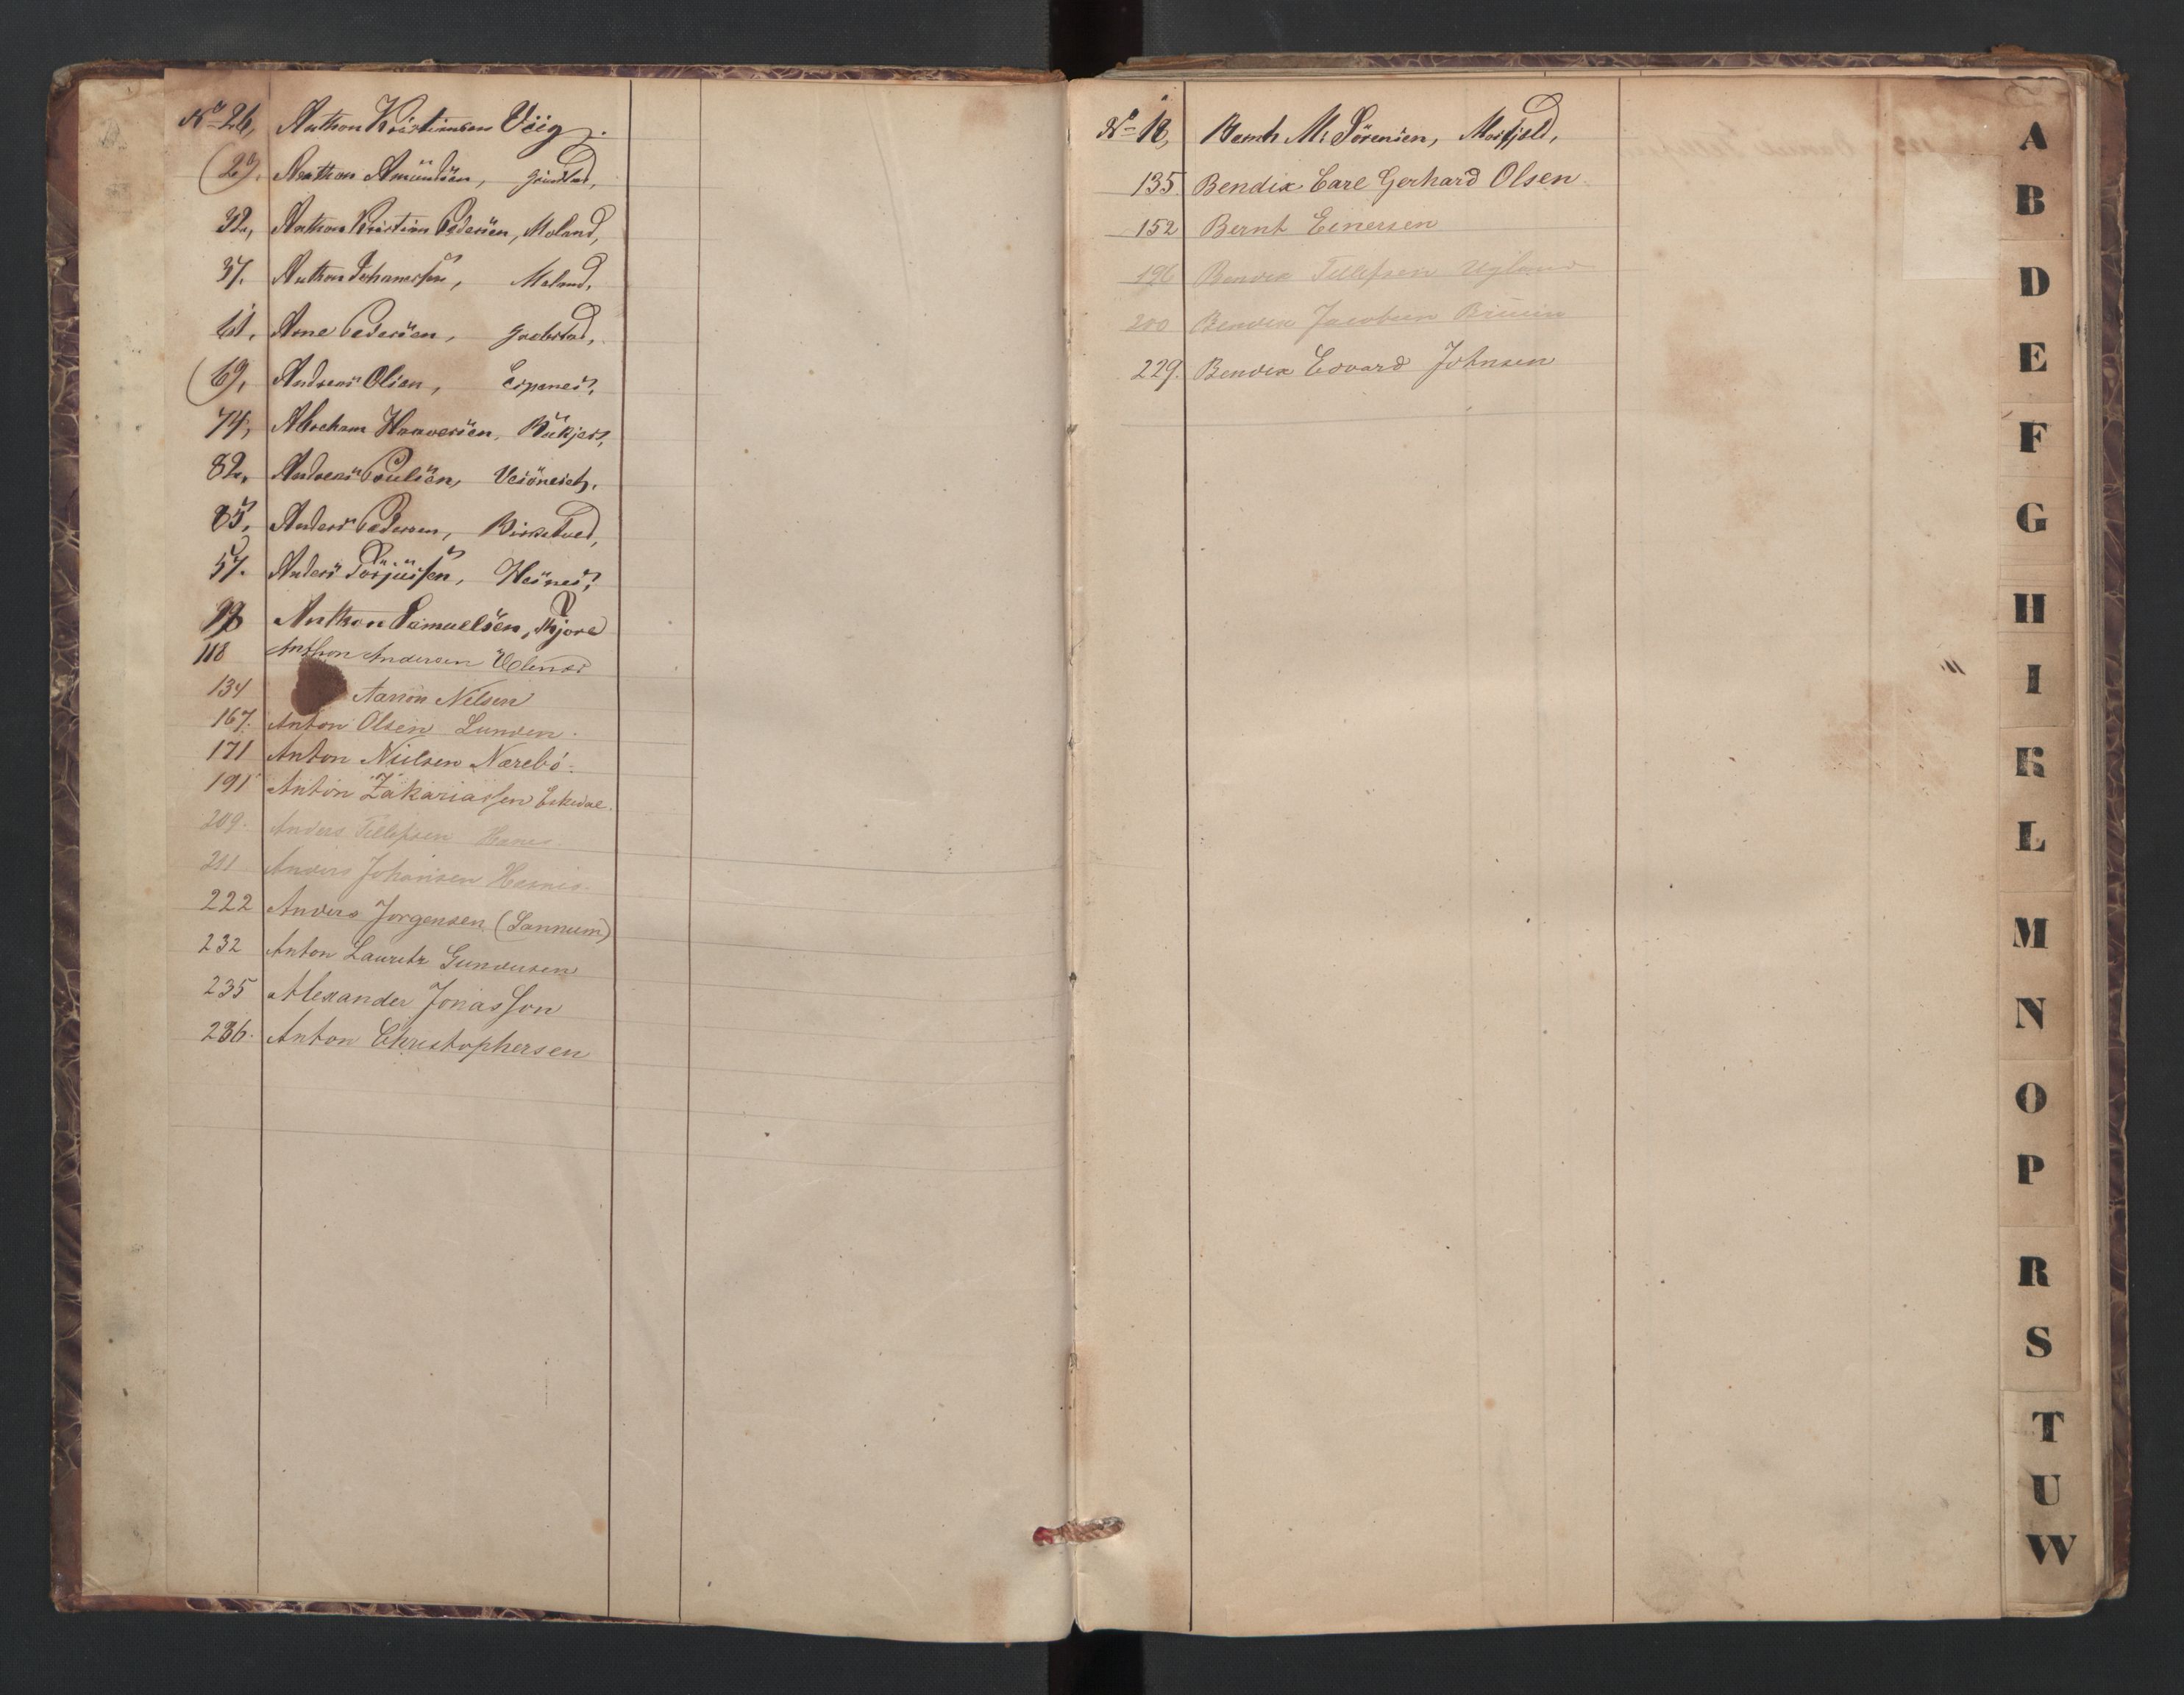 No 26, Anthon Kristiansen Viig.
(29, Anthon Amundsen, Grimstad,
32, Anthon Kristian Pedersen, Moland,
37. Anthon Johanesen, Moland,
61, Arne Pedersen,
(69, Andreas Olsen, Espenes,
74, Abraham Halvorsen, Bukjer,
82, Andreas Poulsen,
85, Anders Pedersen, Birketved,
57. Anders Torjussen, Hesnes,
99 Anthon Samuelsen,
118 Anthon Andersen
134 Aanon Nelsen
167. Anton Olsen Lunden.
171 Anton Nielsen Nærebö.
191 Anton Zakariassen Eikedal.
209. Anders Tellefsen Hesnes.
211 Anders Johansen Hesnes.
222 Anders Jorgensen (Sannum)
232 Anton Lauritz Gundersen
235 Alexander Jonasson
286. Anton Christophersen
No 18, Bernh M. Sörensen, Mosfjeld,
135 Bendix Carl Gerhard Olsen
152 Bernt Einersen
196 Bendix Tellefsen Ugland
200 Bendix Jacobsen
229. Bendix Edvard Johnsen
A
B
D
E
F
G
H
I
K
L
M
N
O
P
R
S
T
U
W